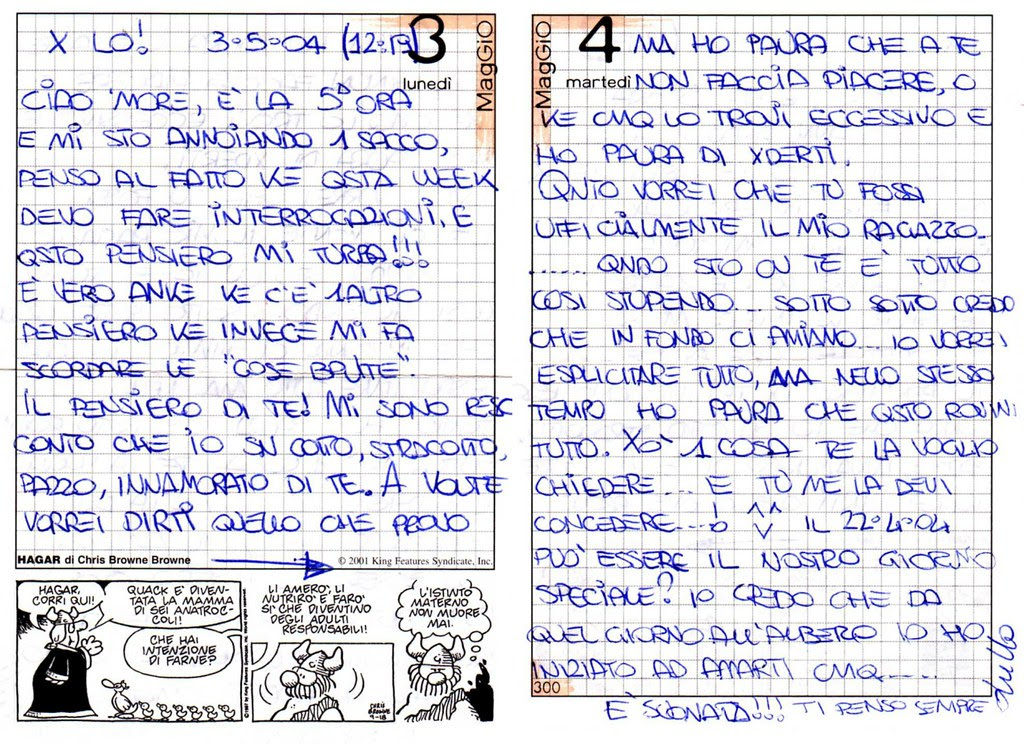 3
MAGGIO
lunedì
X LO! 3·5·04 (12:19)
CIAO 'MORE, E' LA 5ª ORA
E MI STO ANNOIANDO 1 SACCO,
PENSO AL FATTO KE QSTA WEEK
DEVO FARE INTERROGAZIONI, E
QSTO PENSIERO MI TURBA!!!
E' VERO ANKE KE C'E' 1ALTRO
PENSIERO KE INVECE MI FA
SCORDARE LE "COSE BRUTTE".
IL PENSIERO DI TE! MI SONO RESO
CONTO CHE IO SN COTTO, STRACOTTO,
PAZZO, INNAMORATO DI TE. A VOLTE
VORREI DIRTI QUELLO CHE PROVO
HAGAR di Chris Browne Browne
© 2001 King Features Syndicate, Inc.
HAGAR, CORRI QUI!
QUACK E' DIVEN-
TATA LA MAMMA
DI SEI ANATROC-
COLI!
CHE HAI
INTENZIONE
DI FARNE?
LI AMERO', LI
NUTRIRO' E FARO'
SI' CHE DIVENTINO
DEGLI ADULTI
RESPONSABILI!
L'ISTINTO
MATERNO
NON MUORE
MAI.
CHRIS
BROWNE
9-18
4
MAGGIO
martedì
MA HO PAURA CHE A TE
NON FACCIA PIACERE, O
KE CMQ LO TROVI ECCESSIVO E
HO PAURA DI XDERTI.
QNTO VORREI CHE TU FOSSI
UFFICIALMENTE IL MIO RAGAZZO..
...... QNDO STO CN TE E' TUTTO
COSI STUPENDO.... SOTTO SOTTO CREDO
CHE IN FONDO CI AMIAMO... IO VORREI
ESPLICITARE TUTTO, MA NELLO STESSO
TEMPO HO PAURA CHE QSTO ROVINI
TUTTO. XO' 1 COSA TE LA VOGLIO
CHIEDERE.... E TU ME LA DEVI
CONCEDERE....! ^^ IL 22·4·04
PUO' ESSERE IL NOSTRO GIORNO
SPECIALE? IO CREDO CHE DA
QUEL GIORNO ALL'ALBERO IO HO
INIZIATO AD AMARTI CMQ.....
300
E' SUONATA!!! TI PENSO SEMPRE